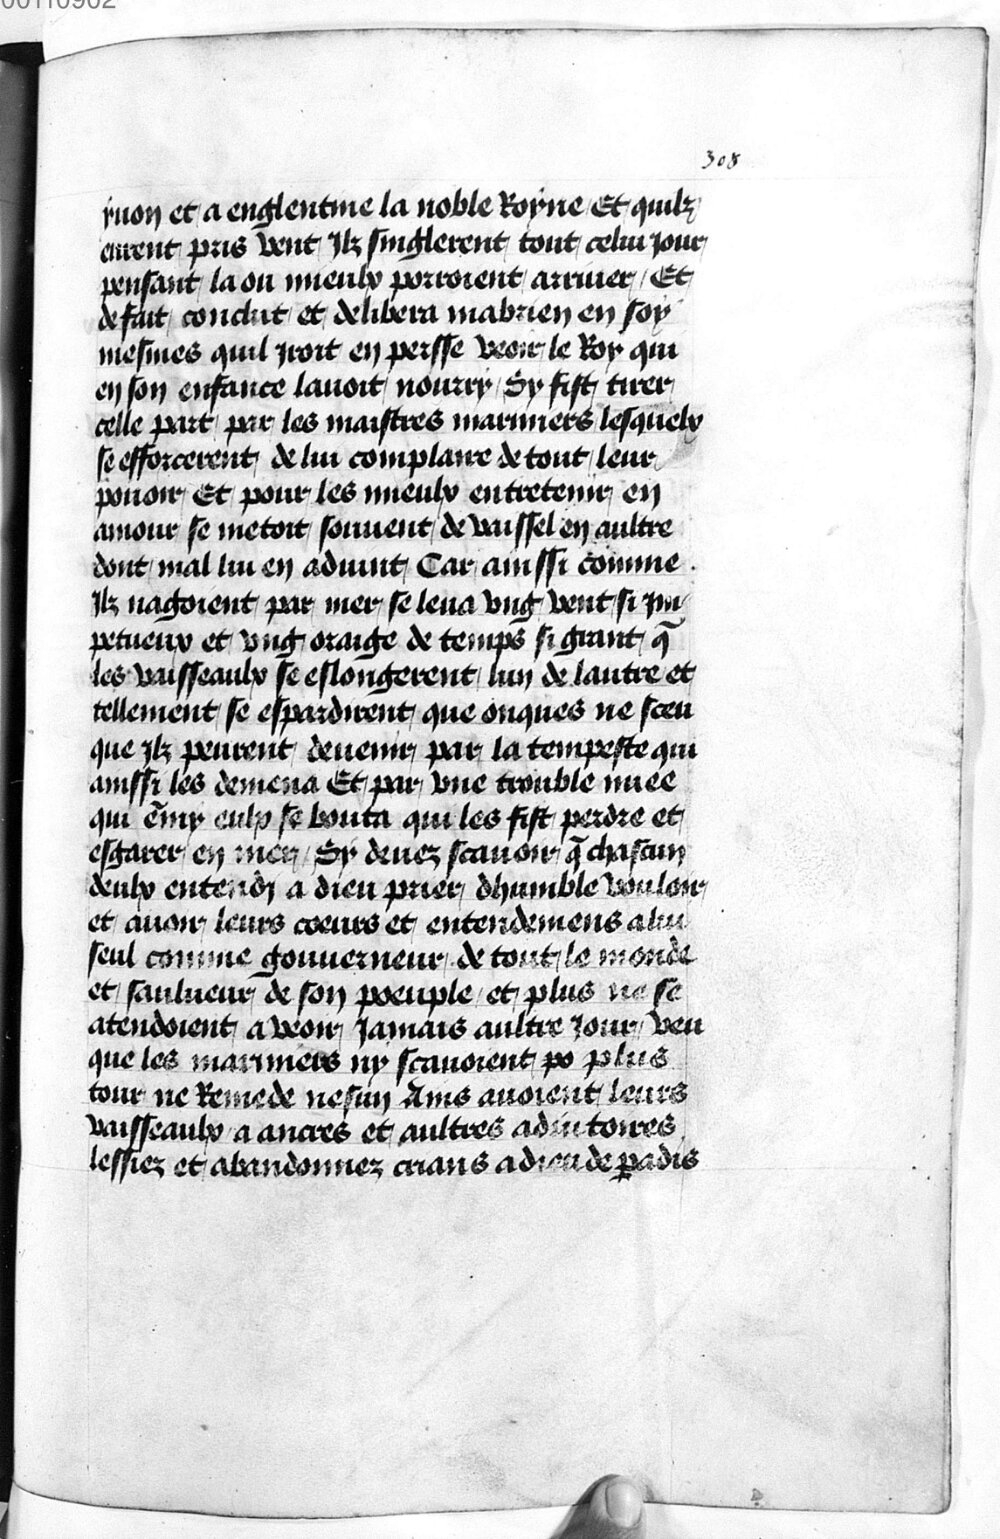 00110902
308
yuon et a englentine la noble Royne Et quilz
eurent pris vent Ilz singlerent tout celui jour
pensant la ou mieulx porroient arriuer / Et
de fait conclut et delibera mabrien en soy
mesmes quil yroit en persse veoir le Roy qui
en son enfance lauoit nourry Sy fist tirer
celle part par les maistres marinniers lesquelx
se efforcerent de lui complaire de tout leur
pouoir Et pour les mieulx entretenir en
amour se metoit souuent de vaissel en aultre
dont mal lui en aduint Car ainssi cōmme
Ilz nagoient par mer se leua vng vent si Im
petueux et vng oraige de temps si grant q̄
les vaisseaulx se eslongerent lun de lautre et
tellement se espardirent que onques ne sceu
que Ilz peurent deuenir par la tempeste qui
ainssi les demena Et par vne trouble nuee
qui ēmy eulx se bouta qui les fist perdre et
esgarer en mer / Sy deuez scauoir q̄ chascun
deulx entendi a dieu prier dhumble vouloir
et auoir leurs coeurs et entendemens a lui
seul comme gouuerneur de tout le monde
et saulueur de son poeuple et plus ne se
atendoient a veoir Jamais aultre Jour veu
que les marinniers ny scauoient po plus
tour ne Remede nesun Ains auoient leurs
vaisseaulx a ancres et aultres adiutoires
lessiez et abandonnez crians a dieu de ꝑadis